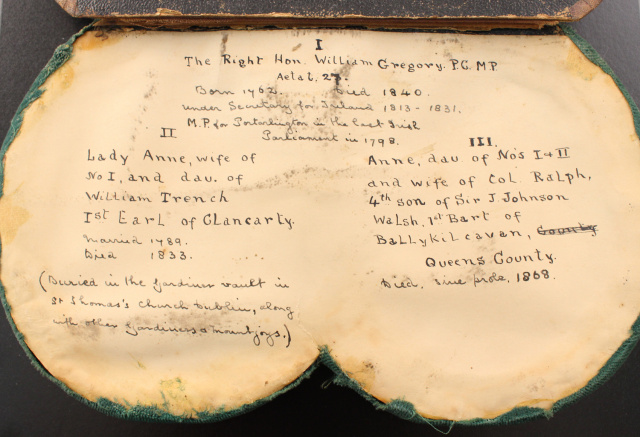 I
The Right Hon. William Gregory. P.C. M.P.
Aetat. 27.
Born 1762. Died 1840.
Under Secretary for Ireland 1813-1831.
M.P. for Portarlington in the last Irish
Parliament in 1798.
II
Lady Anne, wife of
No I, and dau. of
William Trench
Ist Earl of Clancarty.
Married 1789.
Died 1833.
(Buried in the Gardiner vault in
St Thomas's Church Dublin, along
with other Gardiners & Mountjoys.)
III.
Anne, dau of No's I+II
and wife of Col. Ralph,
4th son of Sir J Johnson
Walsh, 1st Bart of
Ballykilcavan, County
Queens County.
Died, sine prole, 1868.